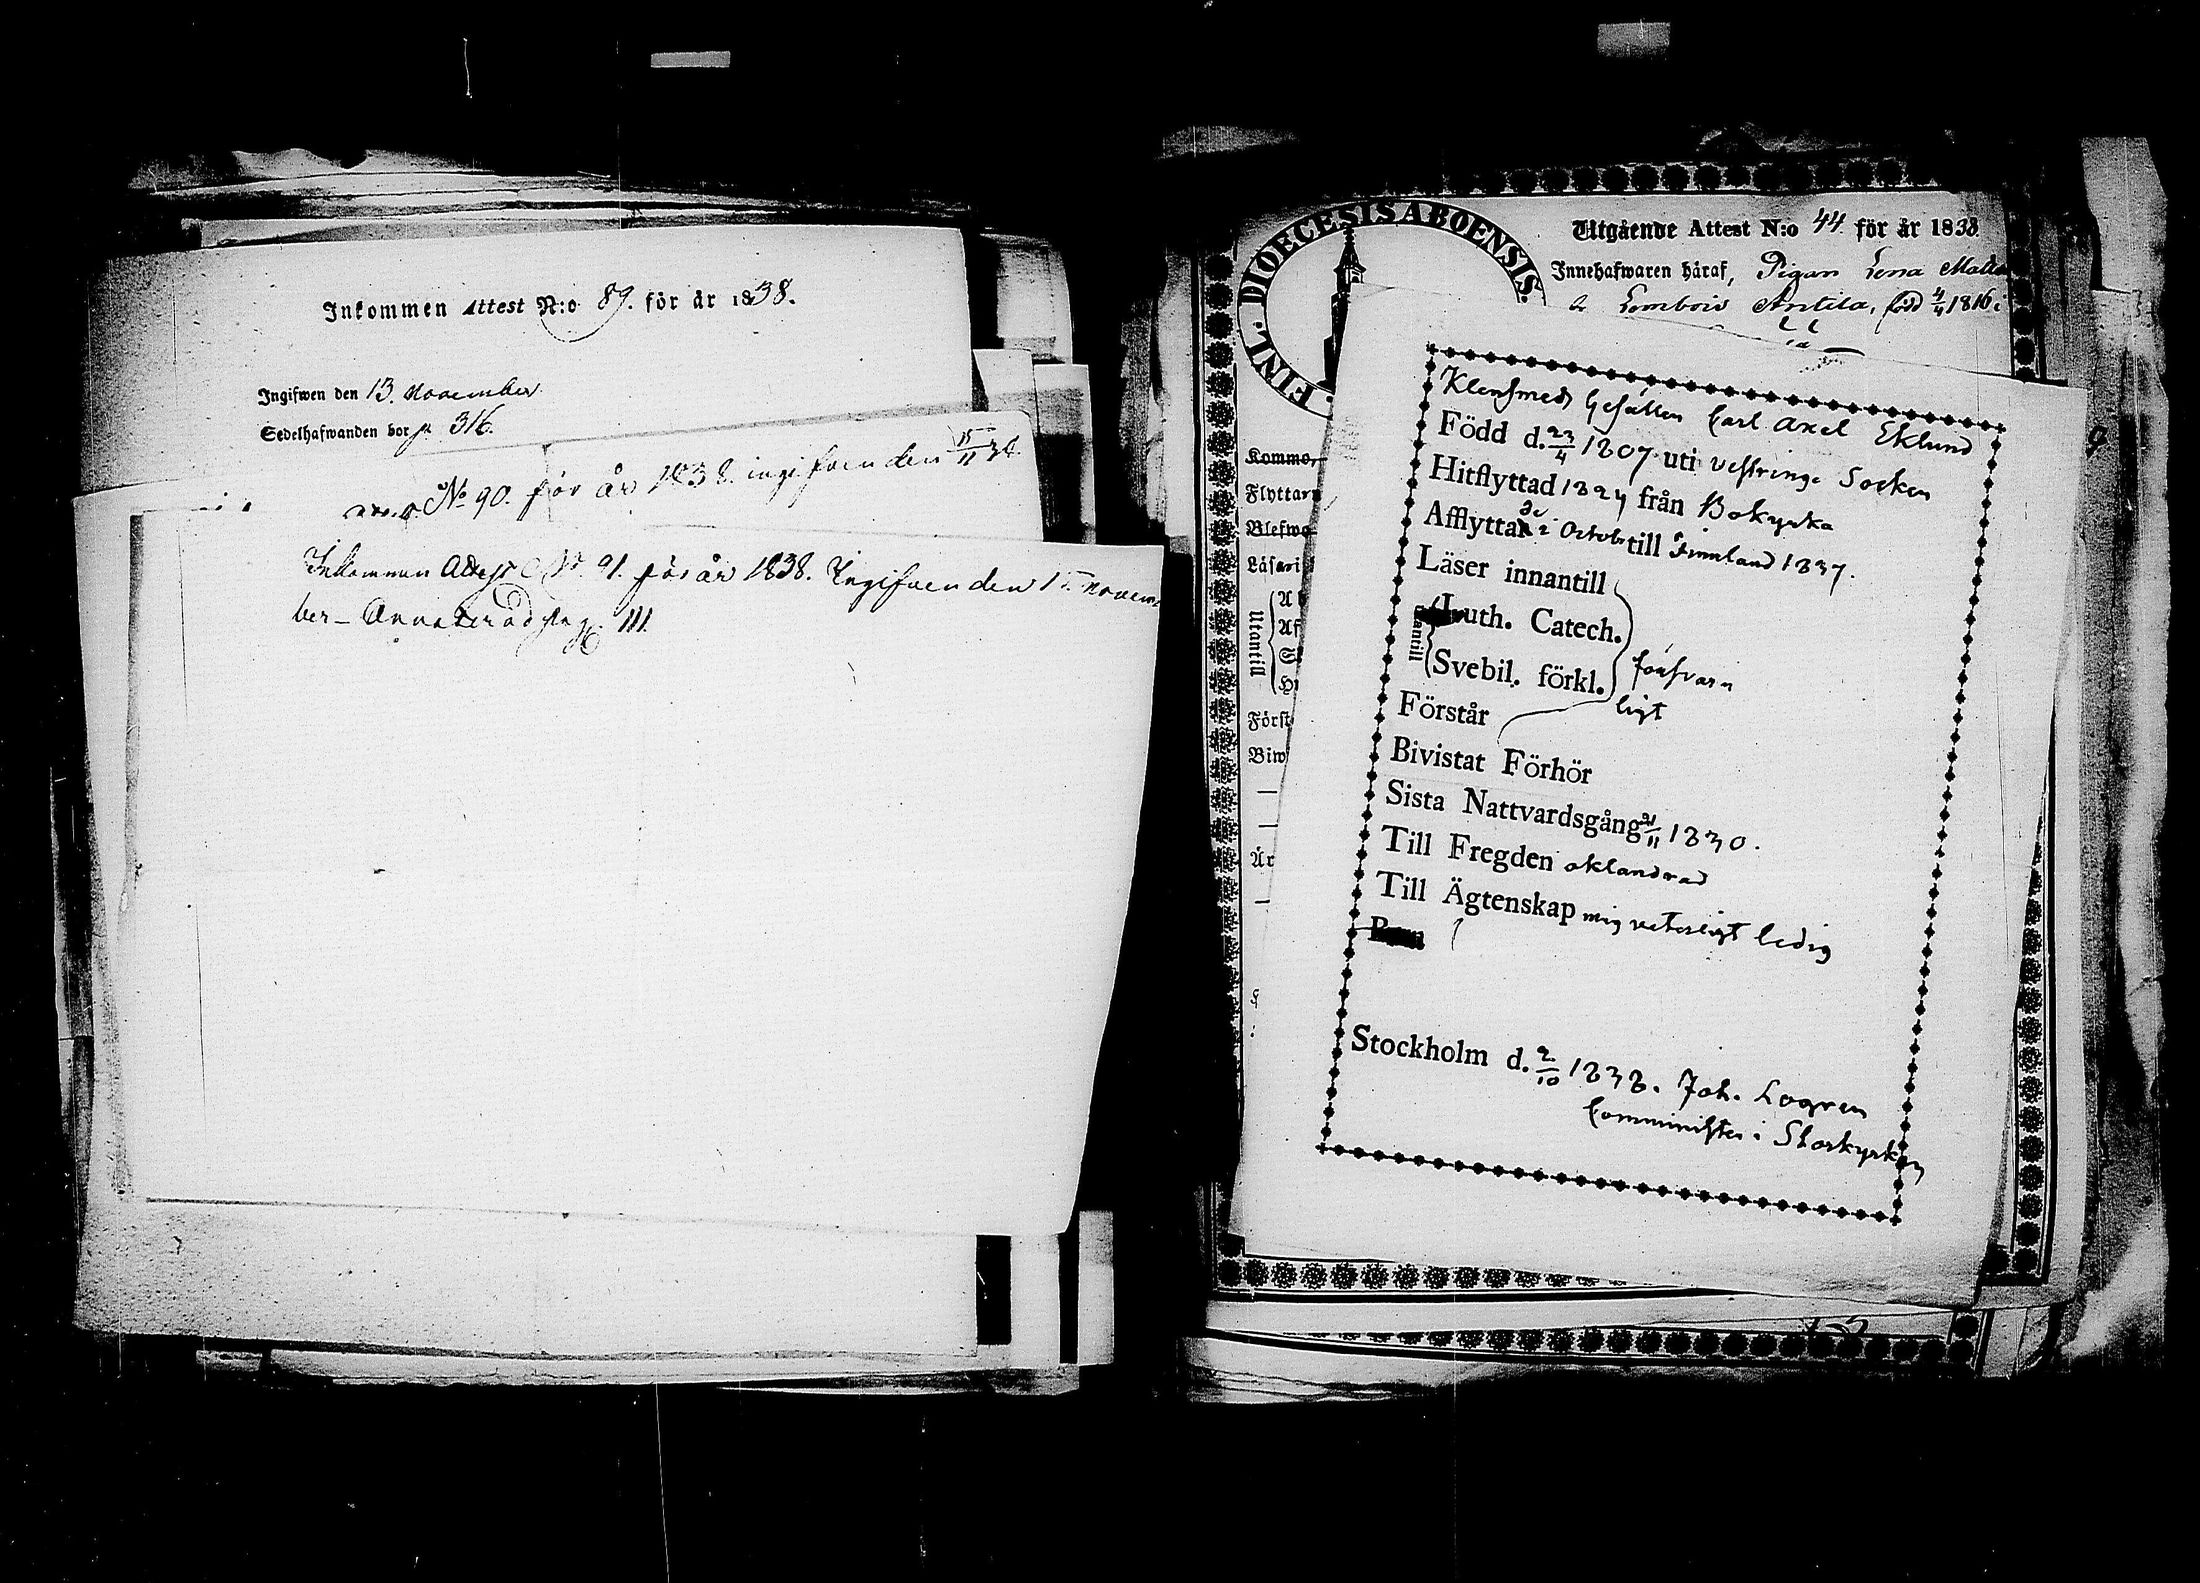 Inkommen Attest N:o 89. för år 1838.
Ingifwen den 13. November
Sedelhafwanden bor p. 316.
No 90. för år 1838. ingifven den 15/11 38.
Inkommen Attest No. 91. för år 1838. Ingifven den 15. Novem-
ber - Annoterad pag 111.
FINL. DIOECESIS ABOENSIS.
Utgående Attest N:o 44 för år 1838
Innehafwaren häraf, Pigan Lena
Lombois Antila, född 4/4 1816 i
Komme
Flyttar
Läser i
Utantill
Förs
Biw
Klensmeds Gesällen Carl Axel Eklund
Född d. 23/4 1807 uti Vestringe Socken
Hitflyttad 1824 från Bokyrka
Afflyttar i October till Finnland 1837.
Läser innantill
Luth. Catech.
antill
Svebil. förkl.
försvar-
ligt
Förstår
Bivistat Förhör
Sista Nattvardsgång 21/11 1830.
Till Fregden oklandrad
Till Ägtenskap mig veterligt ledig
Stockholm d. 2/10 1838. Joh. Logren
Comminister i Storkyrkan